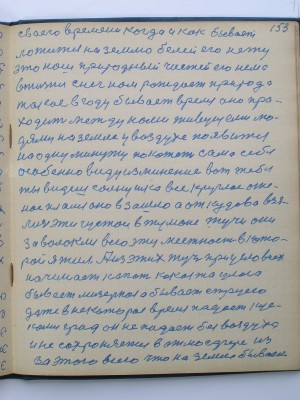 153
своего времени когда и как бывает
ложится на землю белей его нету
это наш природный чистей его нема
в жизни снег нам рождает природа
такое в году бывает время оно про-
ходит между нами живущими лю-
дями на земле и в воздухе появится
на одну минуту покажет сама себя
особенно виду изминение вот тебе
ты видиш солнышко все крупное огне-
ное пламя оно взашло а откудова взя-
лись эти густои в тумоне тучи они
заволокли всю эту местность в кото-
рой я жил. А из этих туч при условиях
начинает капат какая та
бывает мизерная а бывает струею
даже в некоторое время падает
град он не падает без воздуха
и не сохроняется в атмосфере из
за этого всего что на земле бывает